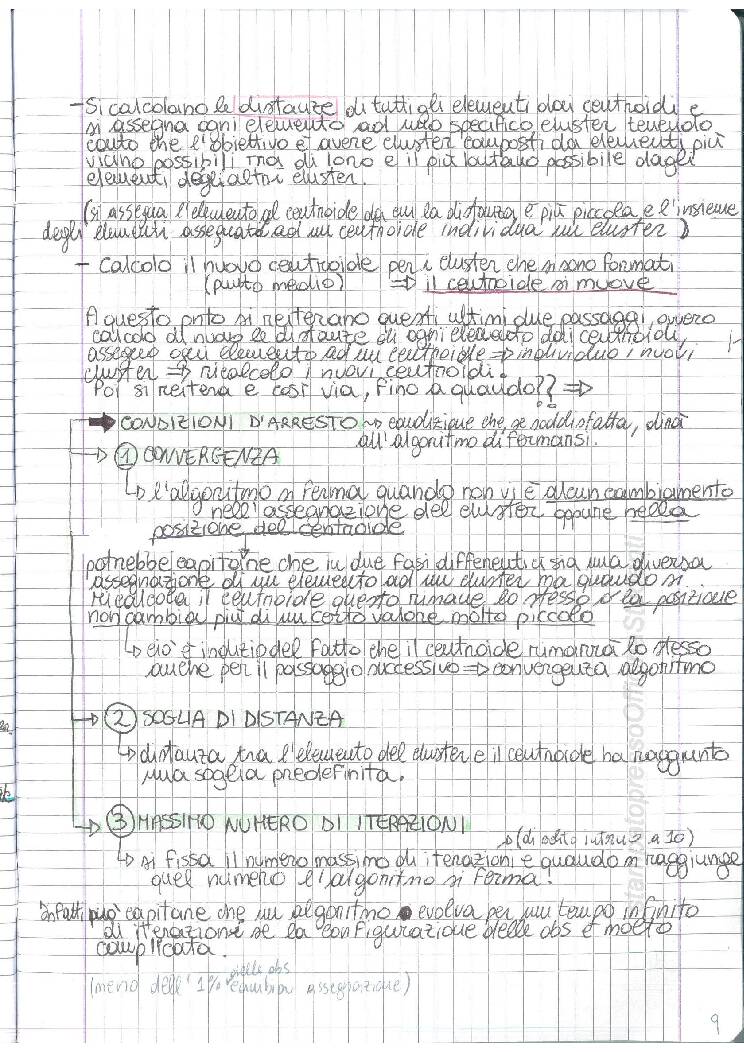 - Si calcolano le distanze di tutti gli elementi dai centroidi e
si assegna ogni elemento ad uno specifico cluster tenendo
conto che l'obiettivo è avere cluster composti da elementi più
vicino possibili tra di loro e il più lontano possibile dagli
elementi degli altri cluster.
(si assegna l'elemento al centroide da cui la distanza è più piccola e l'insieme
degli elementi assegnato ad un centroide individua un cluster)
- Calcolo il nuovo centroide per i cluster che si sono formati
(punto medio) ⇒ il centroide si muove
A questo pnto si reiterano questi ultimi due passaggi, ovvero
calcolo di nuovo le distanze di ogni elemento dai centroidi,
assegno ogni elemento ad un centroide ⇒ individuo i nuovi
cluster ⇒ ricalcolo i nuovi centroidi.
Poi si reitera e così via, fino a quando?? ⇒
➡ CONDIZIONI D'ARRESTO ~> condizione che, se soddisfatta, dirà
all'algoritmo di fermarsi.
→ ① CONVERGENZA
↳ l'algoritmo si ferma quando non vi è alcun cambiamento
nell'assegnazione del cluster oppure nella
posizione del centroide
potrebbe capitare che in due fasi differenti ci sia una diversa
assegnazione di un elemento ad un cluster ma quando si
ricalcola il centroide questo rimane lo stesso o la posizione
non cambia più di un certo valore molto piccolo
↳ ciò è indizio del fatto che il centroide rimarrà lo stesso
anche per il passaggio successivo ⇒ convergenza algoritmo
→ ② SOGLIA DI DISTANZA
↳ distanza tra l'elemento del cluster e il centroide ha raggiunto
una soglia predefinita.
→ ③ MASSIMO NUMERO DI ITERAZIONI
↳ (di solito intorno a 10)
↳ si fissa il numero massimo di iterazioni e quando si raggiunge
quel numero l'algoritmo si ferma!
Infatti può capitare che un algoritmo evolva per un tempo infinito
di iterazioni se la configurazione delle obs è molto
complicata.
(meno dell'1% delle obs cambia assegnazione)
9